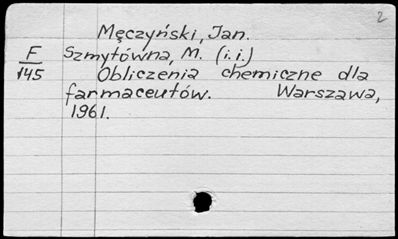 2
Męczyński, Jan.
F
145
Szmytówna, M. (i.i.)
Obliczenia chemiczne dla
farmaceutów. Warszawa,
1961.